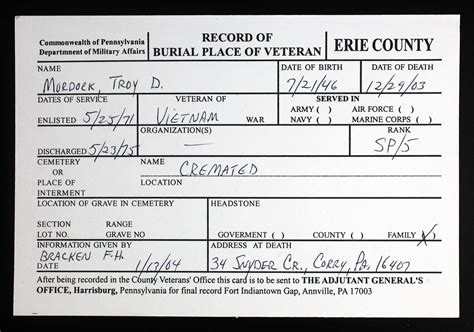 Commonwealth of Pennsylvania
Department of Military Affairs
RECORD OF
BURIAL PLACE OF VETERAN
ERIE COUNTY
NAME
DATE OF BIRTH
DATE OF DEATH
MURDOCK, TROY D.
7/21/46
12/29/03
DATES OF SERVICE
VETERAN OF
SERVED IN
ENLISTED 5/25/71
VIETNAM WAR
ARMY ( ) AIR FORCE ( )
NAVY ( ) MARINE CORPS ( )
ORGANIZATION(S)
RANK
DISCHARGED 5/23/75
—
SP/5
CEMETERY
OR
PLACE OF
INTERMENT
NAME
CREMATED
LOCATION
LOCATION OF GRAVE IN CEMETERY
HEADSTONE
SECTION RANGE
LOT NO. GRAVE NO.
GOVERMENT ( ) COUNTY ( ) FAMILY (/)
INFORMATION GIVEN BY
ADDRESS AT DEATH
BRACKEN F.H.
DATE 1/13/04
34 SNYDER CR., CORRY, PA. 16407
After being recorded in the County Veterans' Office this card is to be sent to THE ADJUTANT GENERAL'S
OFFICE, Harrisburg, Pennsylvania for final record Fort Indiantown Gap, Annville, PA 17003